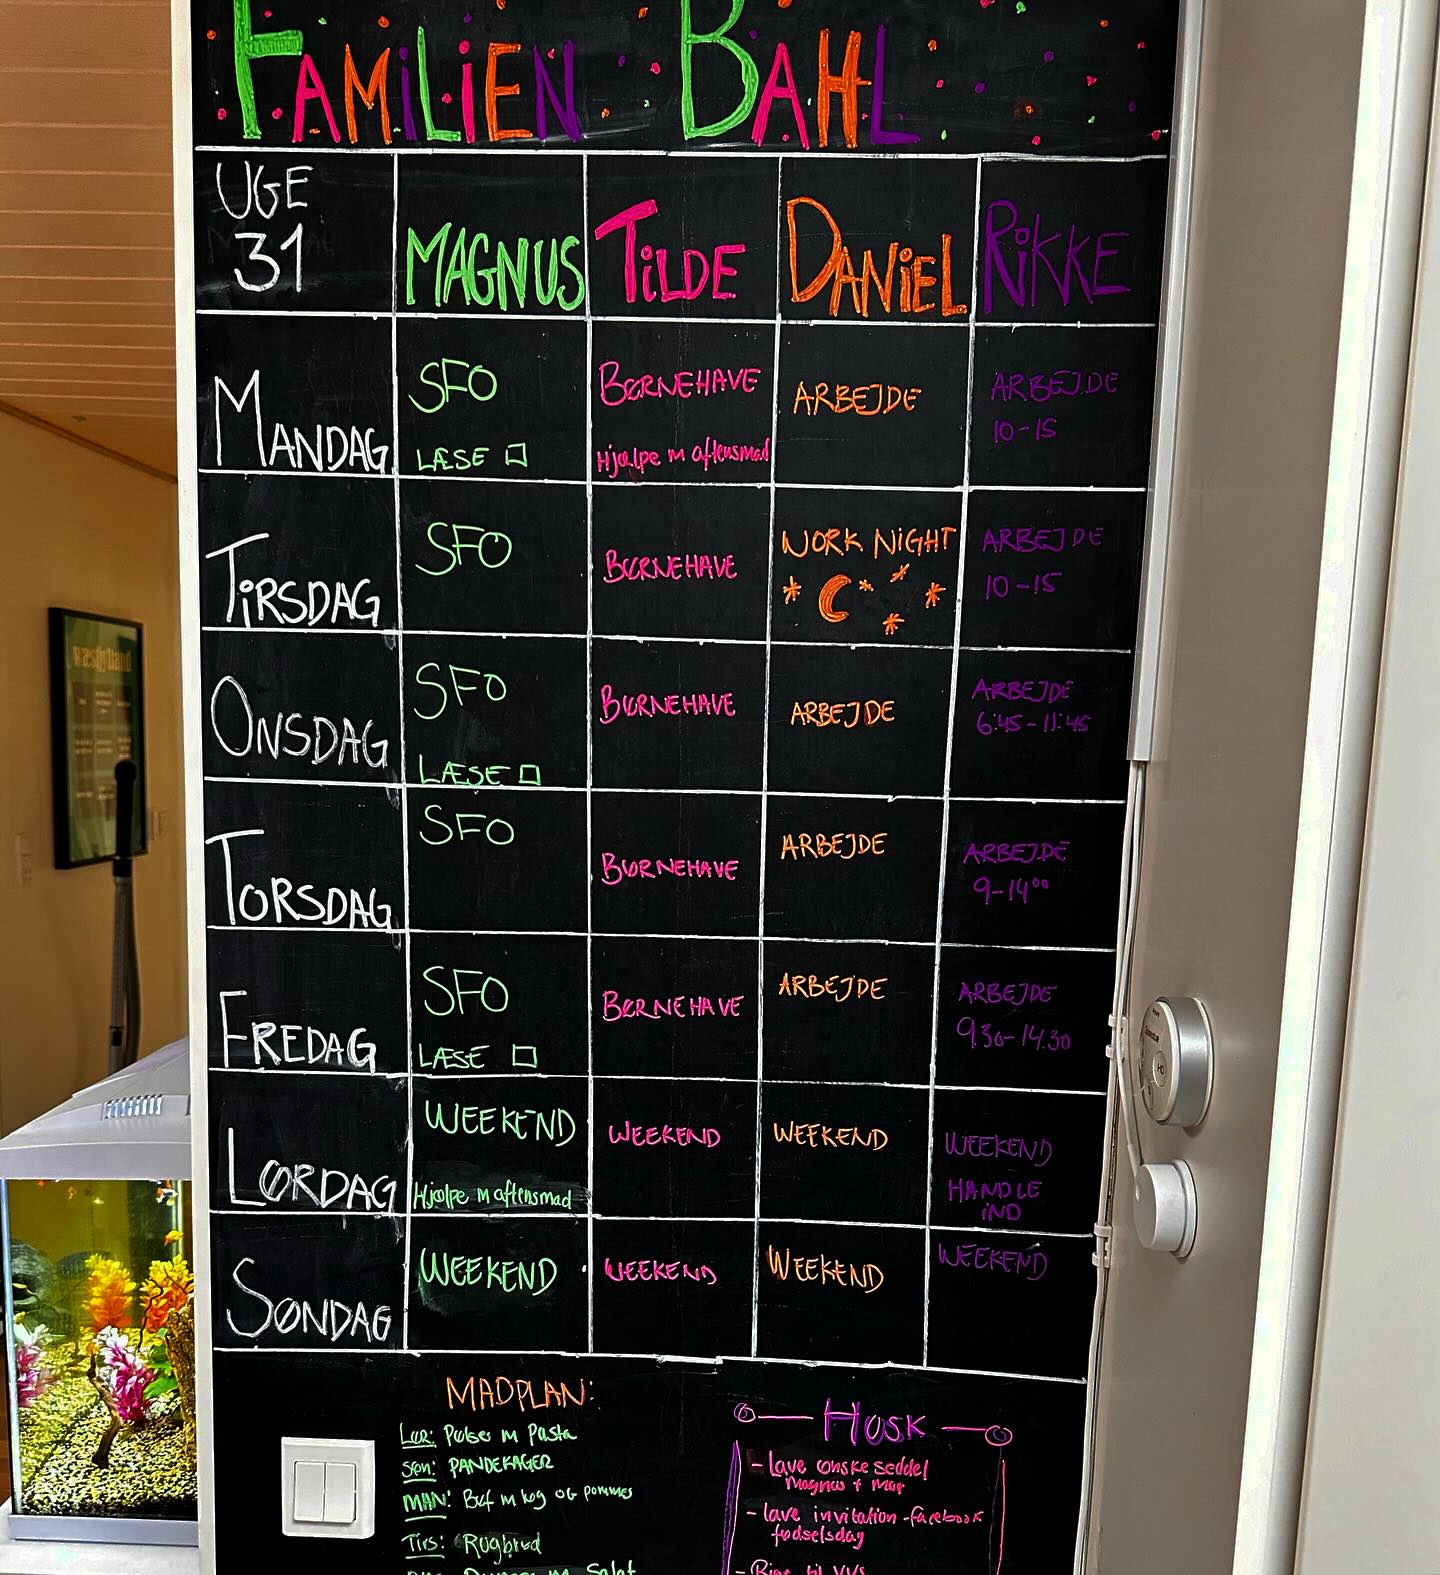 FAMILIEN BAHL
UGE
31
MAGNUS
TILDE
DANIEL
RIKKE
MANDAG
SFO
LÆSE
BØRNEHAVE
Hjælpe m aftensmad
ARBEJDE
ARBEJDE
10-15
TIRSDAG
SFO
BØRNEHAVE
WORK NIGHT
ARBEJDE
10-15
ONSDAG
SFO
LÆSE
BØRNEHAVE
ARBEJDE
ARBEJDE
6:45-11:45
TORSDAG
SFO
BØRNEHAVE
ARBEJDE
ARBEJDE
9-14⁰⁰
FREDAG
SFO
LÆSE
BØRNEHAVE
ARBEJDE
ARBEJDE
9.30-14.30
LØRDAG
WEEKEND
Hjælpe m aftensmad
WEEKEND
WEEKEND
WEEKEND
HANDLE
IND
SØNDAG
WEEKEND
WEEKEND
WEEKEND
WEEKEND
MADPLAN:
Lør: Pølser m Pasta
Søn: PANDEKAGER
MAN: Bøf m løg OG pommes
Tirs: Rugbrød
m Salat
HUSK
- Lave ønskeseddel
Magnus + Mor
- lave invitation-facebook
fødselsdag
- Ring til VVS